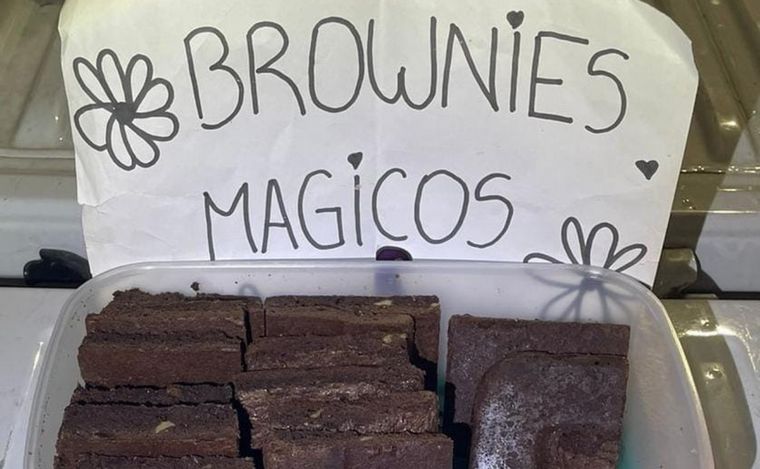 BROWNiES
MAGiCOS